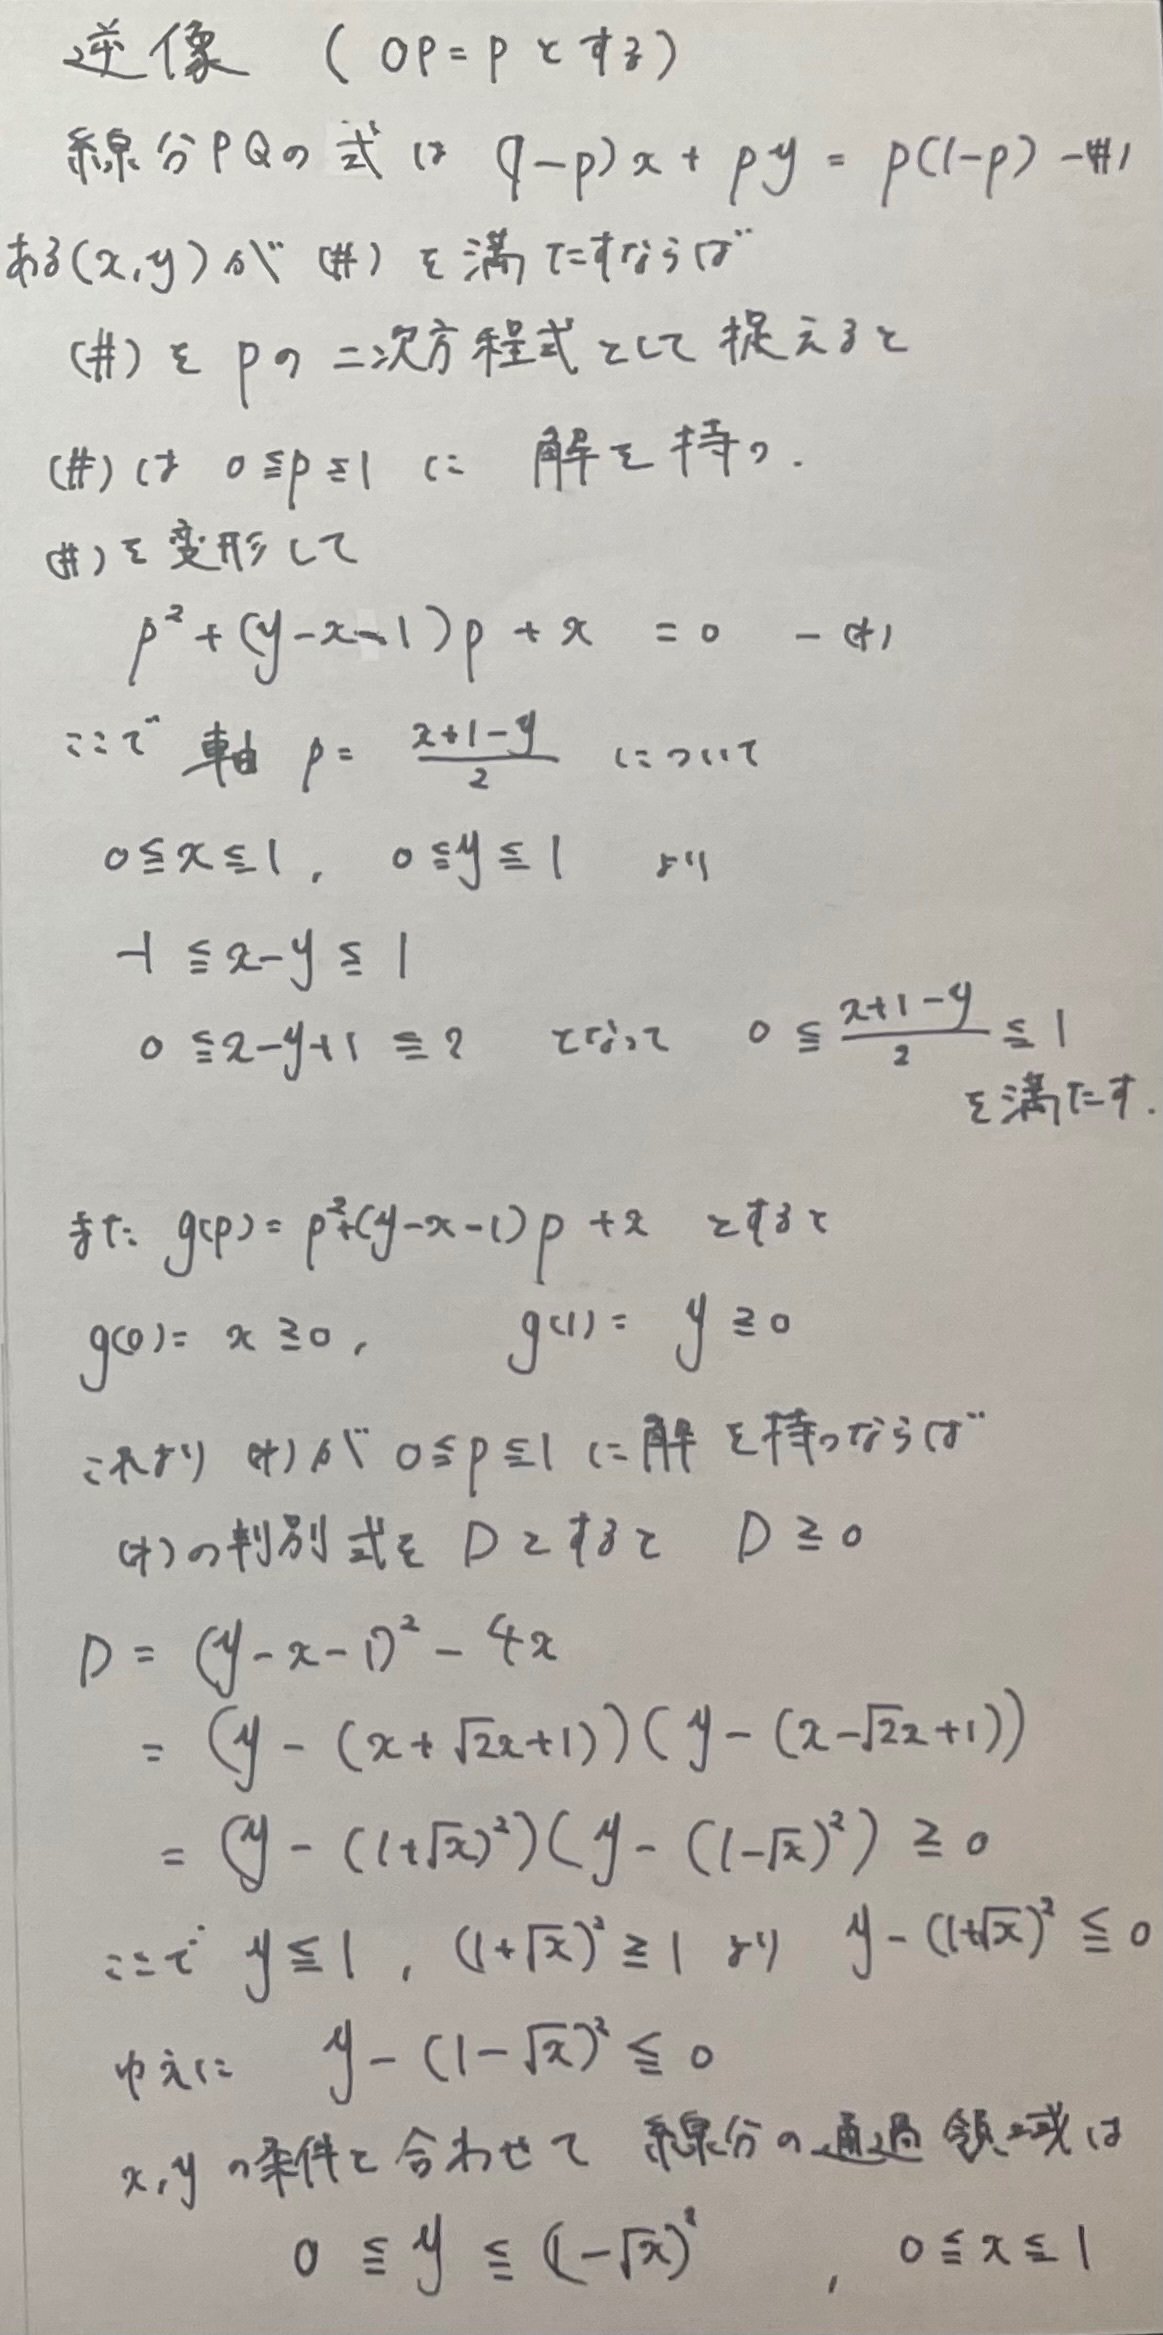 逆像 (OP=pとする)
線分PQの式は (1-p)x + py = p(1-p) -(#)
ある(x,y)が (#) を満たすならば
(#)を pの二次方程式として捉えると
(#)は 0≦p≦1 に 解を持つ.
(#)を変形して
p²+(y-x-1)p + x = 0 -(*)
ここで 軸 p= (x+1-y)/2 について
0≦x≦1, 0≦y≦1 より
-1 ≦x-y≦ 1
0 ≦x-y+1 ≦2 となって 0 ≦ (x+1-y)/2 ≦1
を満たす.
また g(p)= p²+(y-x-1)p +x とすると
g(0)= x ≧0, g(1)= y ≧0
これより (*)が 0≦p≦1 に解を持つならば
(*)の判別式を Dとすると D ≧0
D = (y-x-1)² - 4x
= (y - (x+√2x+1))(y - (x-√2x+1))
= (y - (1+√x)²)(y - (1-√x)²) ≧ 0
ここで y≦1, (1+√x)²≧1 より y-(1+√x)² ≦0
ゆえに y-(1-√x)² ≦ 0
x,yの条件と合わせて 線分の通過領域は
0 ≦ y ≦ (1-√x)², 0≦x≦1